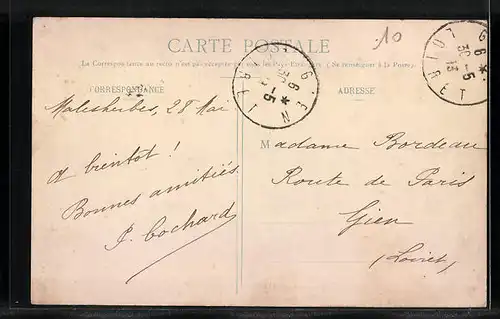 CARTE POSTALE
10
La Correspondance au recto n'est pas acceptée par tous les Pays Etrangers (Se renseigner à la Poste).
CORRESPONDANCE
ADRESSE
Malesherbes, 28 Mai
A bientôt !
Bonnes amitiés
P. Cochard
Madame Bordeau
Route de Paris
Gien
(Loiret)
GIEN
6
30 - 5
LOIRET
6
30 - 5
13